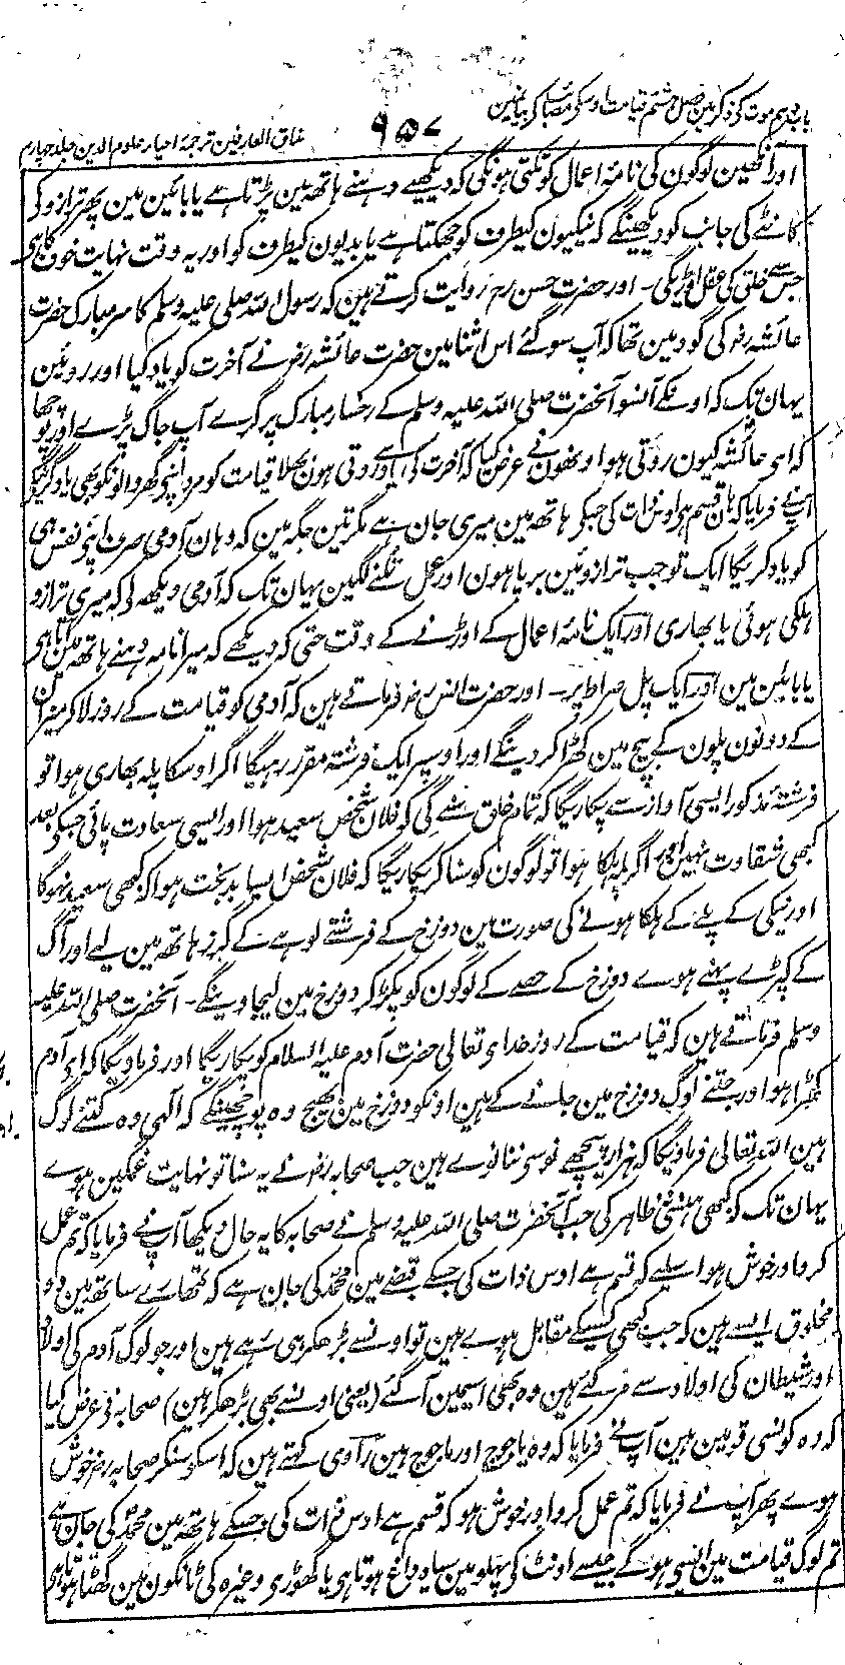 باب دہم موت کے ذکر مین فصل ہشتم قیامت اور سکی مصائب کے بیان مین
۹۵۷
مذاق العارفین ترجمۂ احیاء علوم الدین جلد چہارم
اور آنکھین لوگون کی نامۂ اعمال کو تکتی ہونگی کہ دیکھیے دہنے ہاتھ مین پڑتا ہے یا بائین مین پھر ترازو کے
کانٹے کی جانب کو دیکھینگے کہ نیکیون کیطرف کو جھکتا ہے یا بدیون کیطرف کو اور یہ وقت نہایت خوف کا ہو
جس سے خلق کی عقل اوڑیگی۔ اور حضرت حسن رح روایت کرتے ہین کہ رسول اللہ صلی علیہ وسلم کا سر مبارک حضرت
عائشہ رض کی گود مین تھا کہ آپ سوگئے اس اثنا مین حضرت عائشہ رض نے آخرت کو یاد کیا اور روئین
یہان تک کہ اونکے آنسو آنحضرت صلی اللہ علیہ وسلم کے رخسار مبارک پر گرے آپ جاگ پڑے اور پوچھا
کہ اے عائشہ کیون روتی ہو اونھون نے عرض کیا کہ آخرت کی یاد سے روتی ہون بھلا قیامت کو مرد اپنے گھر والونکو بھی یاد کرینگے
آپنے فرمایا کہ ہان قسم ہے اوس ذات کی جسکے ہاتھ مین میری جان ہے مگر تین جگہ مین کہ وہان آدمی صرف اپنے نفس ہی
کو یاد کریگا ایک تو جب ترازوئین برپا ہون اور عمل تُلنے لگین یہان تک کہ آدمی دیکھ لے کہ میری ترازو
ہلکی ہوئی یا بھاری اور ایک نامۂ اعمال کے اوڑنے کے وقت حتی کہ دیکھے کہ میرا نامہ دہنے ہاتھ مین آتا ہے
یا بائین مین اور ایک پل صراط پر۔ اور حضرت انس رض فرماتے ہین کہ آدمی کو قیامت کے روز لا کر میزان
کے دونون پلون کے بیچ مین کھڑا کر دینگے اور اوسپر ایک فرشتہ مقرر رہیگا اگر اوسکا پلہ بھاری ہوا تو
فرشتۂ مذکور ایسی آواز سے پکاریگا کہ تمام خلق سنے گی کو فلان شخص سعید ہوا اور ایسی سعادت پائی جسکے بعد
کبھی شقاوت نہین اور اگر پلہ ہلکا ہوا تو لوگون کو سنا کر پکاریگا کہ فلان شخص ایسا بدبخت ہوا کہ کبھی سعید نہوگا
اور نیکی کے پلے کے ہلکا ہونے کی صورت مین دوزخ کے فرشتے لوہے کے گرز ہاتھ مین لیے اور آگ
کے کپڑے پہنے ہوے دوزخ کے حصے کے لوگون کو پکڑ کر دوزخ مین لیجاوینگے۔ آنحضرت صلی اللہ علیہ
وسلم فرماتے ہین کہ قیامت کے روز خداے تعالی حضرت آدم علیہ السلام کو پکاریگا اور فرماویگا کہ اے آدم
کھڑا ہو اور جتنے لوگ دوزخ مین جانے کے ہین اونکو دوزخ مین بھیج وہ پوچھینگے کہ الہی وہ کتنے لوگ
ہین اللہ تعالی فرماویگا کہ ہزار پیچھے نوسو ننانوے ہین جب صحابہ رض نے یہ سنا تو نہایت غمگین ہوے
یہان تک کہ کبھی ہنسی ظاہر کی جب آنحضرت صلی اللہ علیہ وسلم نے صحابہ کا یہ حال دیکھا آپ نے فرمایا کہ تم عمل
کرو اور خوش ہو اسلیے کہ قسم ہے اوس ذات کی جسکے قبضے مین محمد کی جان ہے کہ تمھارے ساتھ مین دو
مخلوق ایسے ہین کہ جب کبھی کسیکے مقابل ہوے ہین تو اونسے بڑھکر ہی رہے ہین اور جو لوگ آدم کی اولاد
اور شیطان کی اولاد سے مر گئے ہین وہ بھی اسیمین آگئے (یعنی اونسے بھی بڑھکر ہین) صحابہ نے عرض کیا
کہ وہ کونسی قومین ہین آپ نے فرمایا کہ وہ یاجوج اور ماجوج ہین راوی کہتے ہین کہ اسکو سنکر صحابہ رض خوش
ہوے پھر آپ نے فرمایا کہ تم عمل کرو اور خوش ہو کہ قسم ہے اوس ذات کی جسکے ہاتھ مین محمد کی جان ہے
تم لوگ قیامت مین ایسے ہوگے جیسے اونٹ کے پہلو مین سیاہ داغ ہوتا ہی یا گھوڑی وغیرہ کی ٹانگون مین گھٹا ہوتا ہی